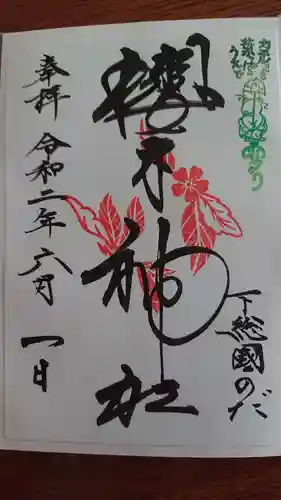 下総國のだ
櫻木神社
奉拝 令和二年六月一日